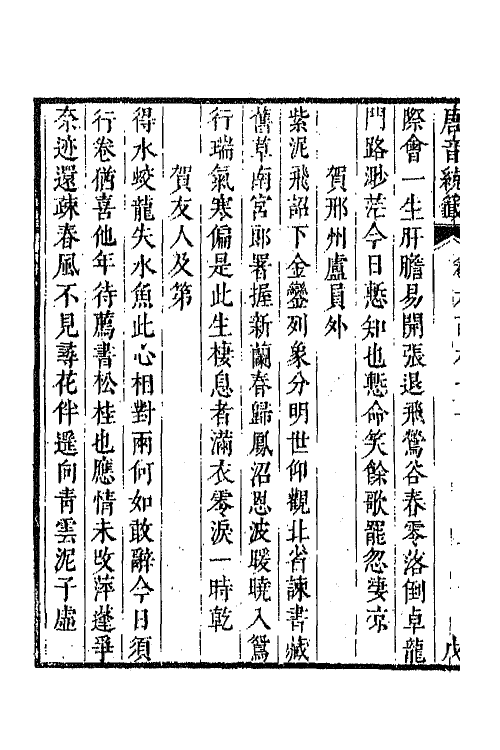 唐音統籖
際會一生肝膽易開張退飛鶯谷春零落倒卓龍
門路渺茫今日慙知也慙命笑餘歌罷忽凄凉
賀邢州盧員外
紫泥飛詔下金鑾列象分明世仰觀北省諫書藏
舊草南宮郎署握新蘭春歸鳳沼恩波暖曉入鴛
行瑞氣寒偏是此生棲息者滿衣零淚一時乾
賀友人及第
得水蛟龍失水魚此心相對兩何如敢辭今日須
行卷猶喜他年待薦書松桂也應情未改萍蓬爭
奈迹還疎春風不見尋花伴遥向青雲泥子虛